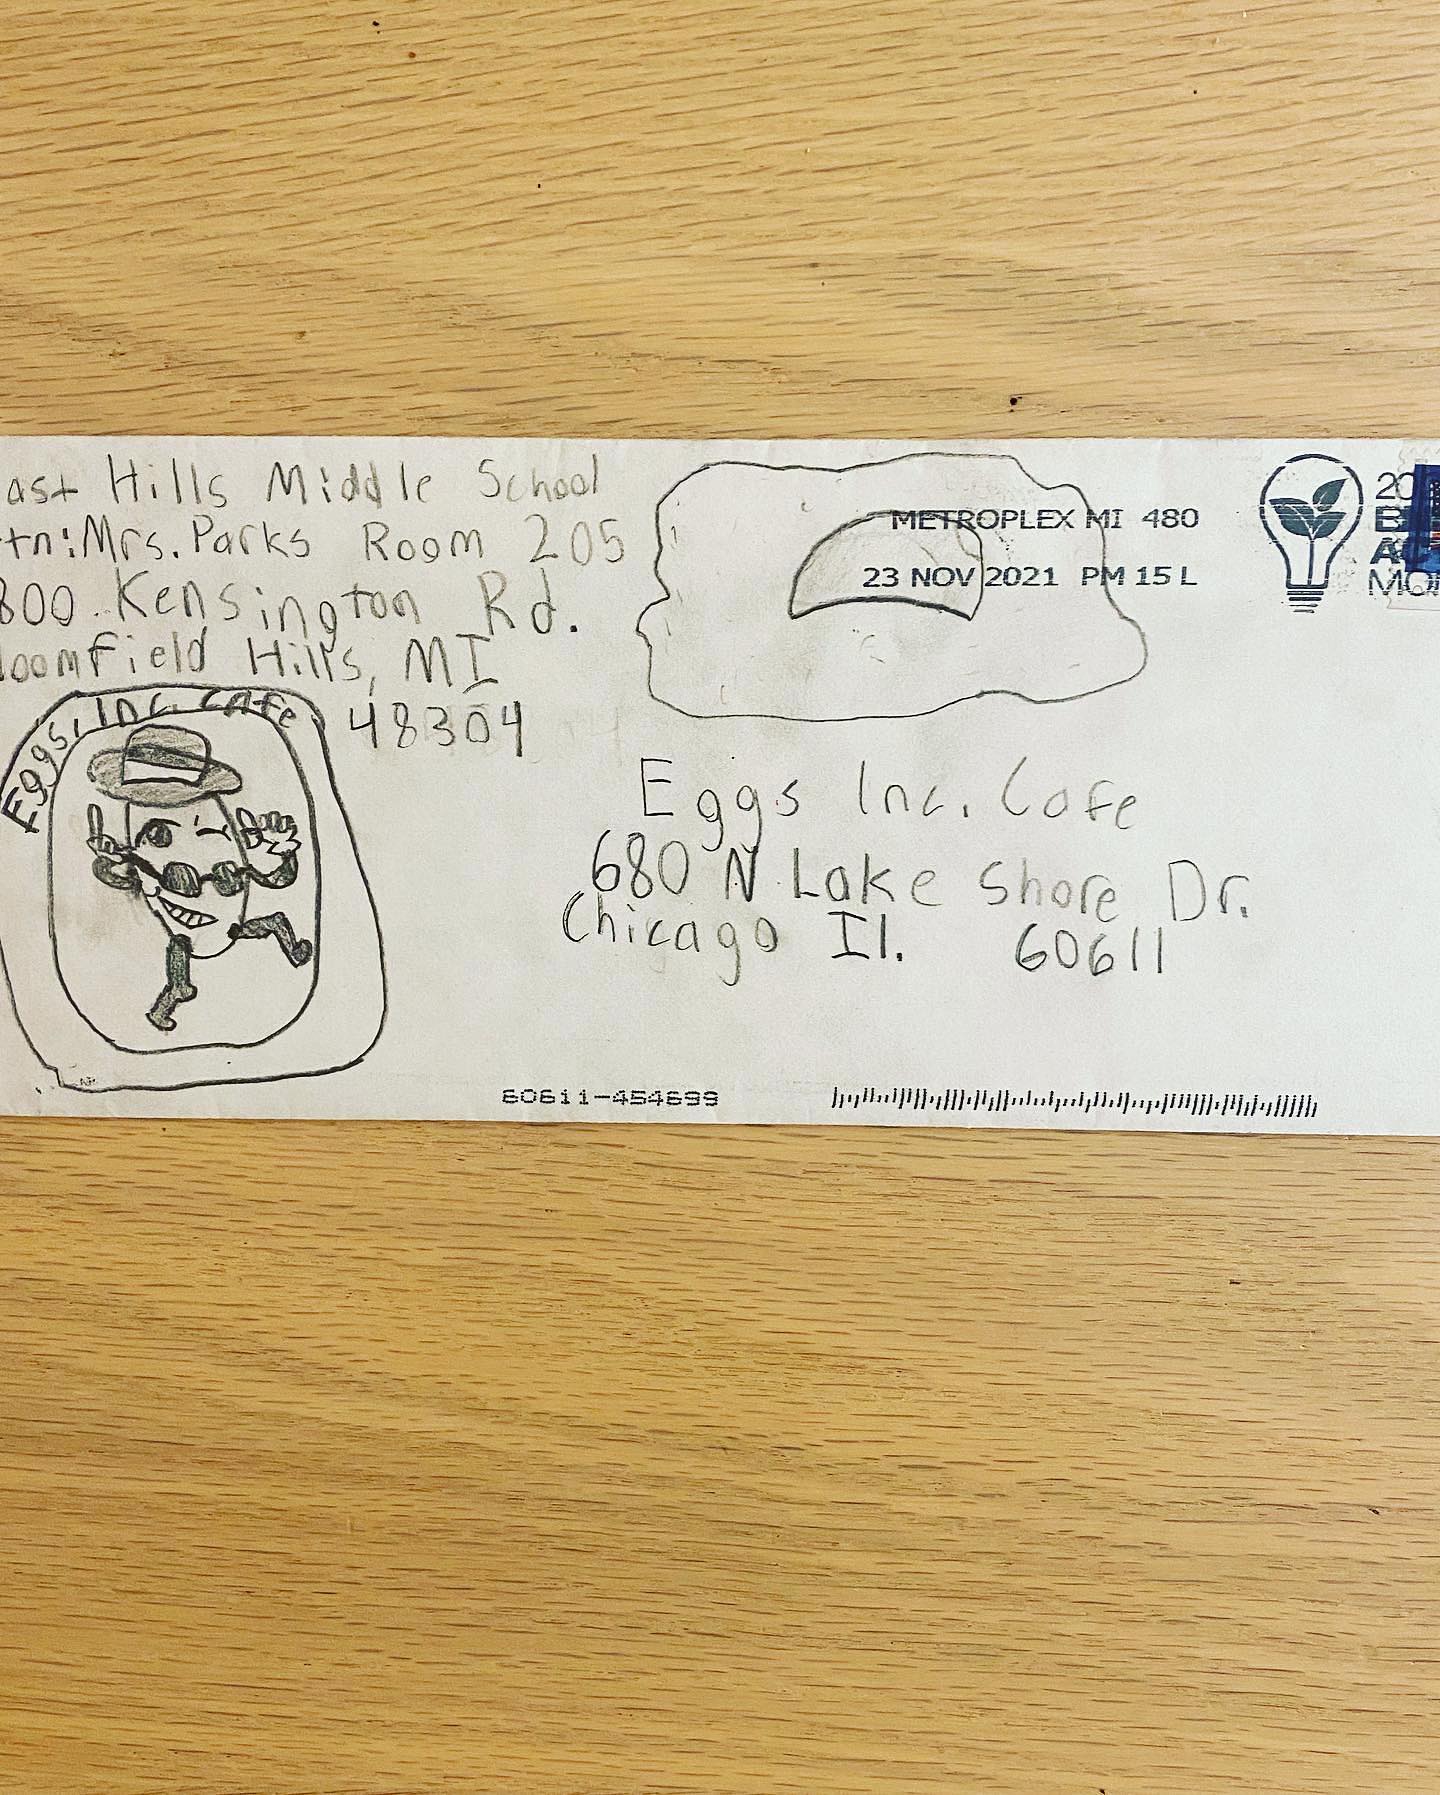 ast Hills Middle School
tn: Mrs. Parks Room 205
800 Kensington Rd.
loomfield Hills, MI
48304
Eggs, Inc. Cafe
METROPLEX MI 480
23 NOV 2021 PM 15 L
20
Eggs Inc. Cafe
680 N Lake Shore Dr.
Chicago Il. 60611
60611-454699